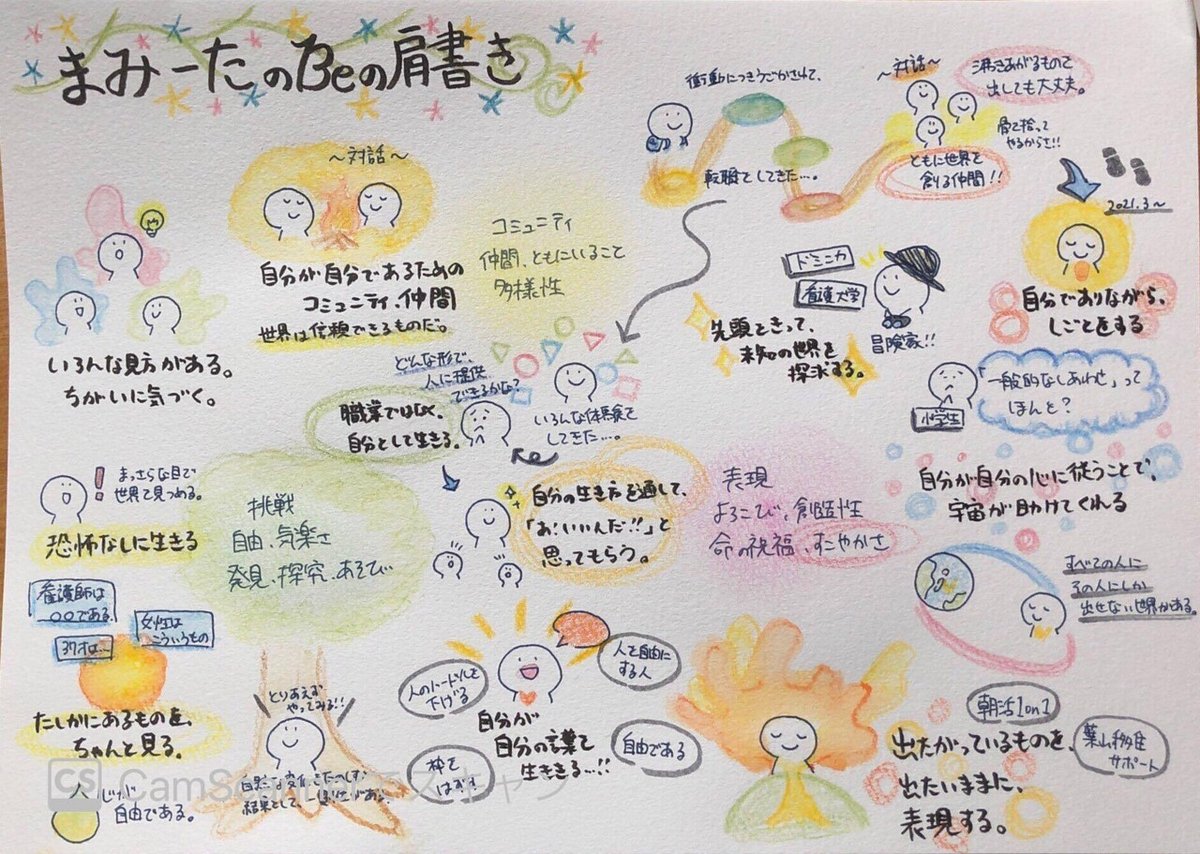 まみーたのBeの肩書き
〜対話〜
自分が自分であるための
コミュニティ、仲間
世界は信頼できるものだ。
コミュニティ
仲間、ともにいること
多様性
いろんな見方がある。
ちがいに気づく。
衝動につきうごかされて、
転職をしてきた…。
〜対話〜
沸きあがるもので
出しても大丈夫。
骨で拾って
やるからさ!!
ともに世界を
創る仲間!!
2021.3〜
自分でありながら、
しごとをする
ドミニカ
看護大学
冒険家!!
先頭をきって、
未知の世界を
探求する。
どんな形で、
人に提供
できるかな?
職業ではなく、
自分として生きる。
いろんな体験を
してきた…。
「一般的なしあわせ」って
ほんと?
小学生
まっさらな目で
世界を見つめる。
恐怖なしに生きる
挑戦
自由、気楽さ
発見、探究、あそび
自分の生き方を通して、
「あ!いいんだ!!」と
思ってもらう。
表現
よろこび、創造性
命の祝福、すこやかさ
自分が自分の心に従うことで、
宇宙が助けてくれる
すべての人に
その人にしか
出せない世界がある。
看護師は
〇〇である
女性は
こういうもの
37才は…
たしかにあるものを、
ちゃんと見る。
とりあえず
やってみる!!
結果として、
人
心が
自由である。
人のハードルを
下げる
人を自由に
する人
自分が
自分の言葉で
生きる…!!
枠を
はずす
自由である
朝活1on1
葉山移住
サポート
出たがっているものを、
出たいままに、
表現する。
CS CamScanner